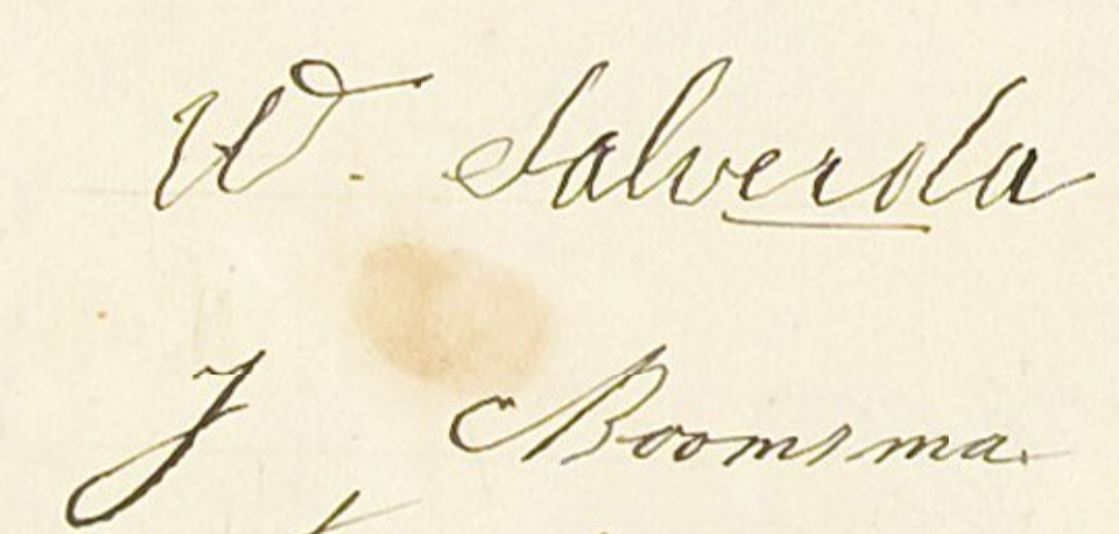 W. Salverda
J Boomsma.